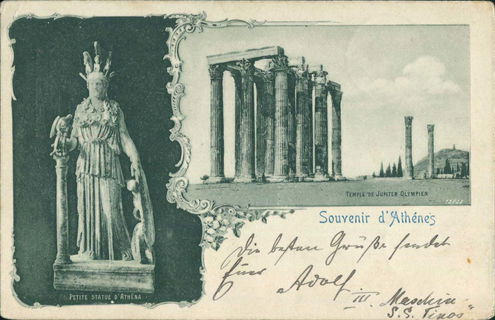 TEMPLE DE JUPITER OLYMPIEN
PETITE STATUE D'ATHÈNA
Souvenir d'Athénes
Die besten Grüße sendet
Euer Adolf
III. Maschin
S.S. Tinos